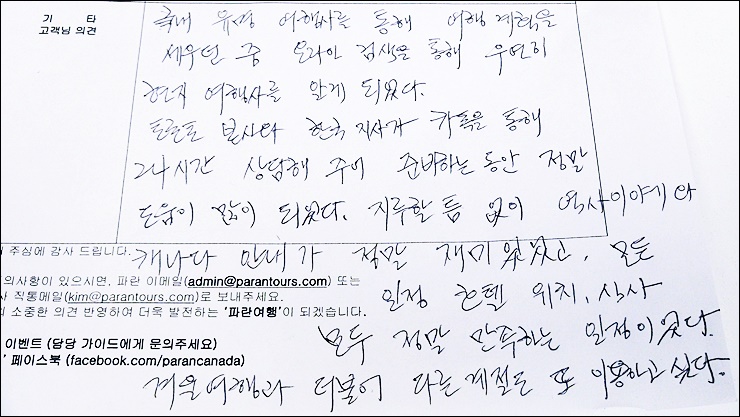 기 타
고객님 의견
국내 유명 여행사를 통해 여행 계획을
세우던 중 온라인 검색을 통해 우연히
현지 여행사를 알게 되었다.
토론토 본사와 한국 지사가 카톡을 통해
24시간 상담해 주어 준비하는 동안 정말
도움이 많이 되었다. 지루할 틈 없이 역사이야기와
캐나다 안내가 정말 재미있었고, 모든
일정 호텔 위치, 식사
모두 정말 만족하는 일정이었다.
겨울여행과 더불어 다른계절도 또 이용하고 싶다.
주심에 감사 드립니다.
의사항이 있으시면, 파란 이메일(admin@parantours.com) 또는
사 직통메일(kim@parantours.com)로 보내주세요.
소중한 의견 반영하여 더욱 발전하는 '파란여행'이 되겠습니다.
이벤트 (담당 가이드에게 문의주세요)
' 페이스북 (facebook.com/parancanada)